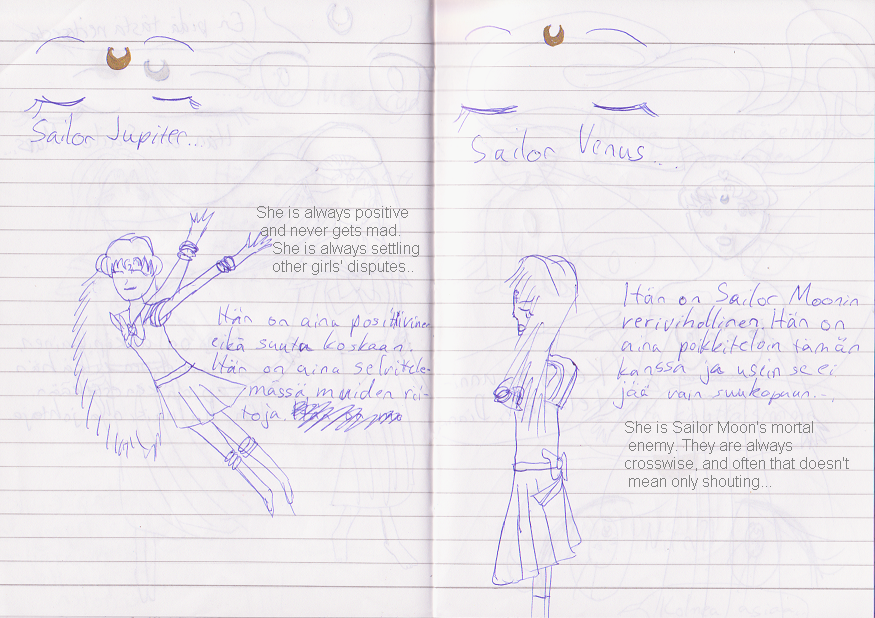 Sailor Jupiter...
She is always positive
and never gets mad.
She is always settling
other girls' disputes..
Hän on aina positiivinen
eikä suutu koskaan.
Hän on aina selvittele-
mässä muiden rii-
toja.
Sailor Venus...
Hän on Sailor Moonin
verivihollinen. Hän on
aina poikkiteloin tämän
kanssa ja usein se ei
jää vain suukopuun...
She is Sailor Moon's mortal
enemy. They are always
crosswise, and often that doesn't
mean only shouting...